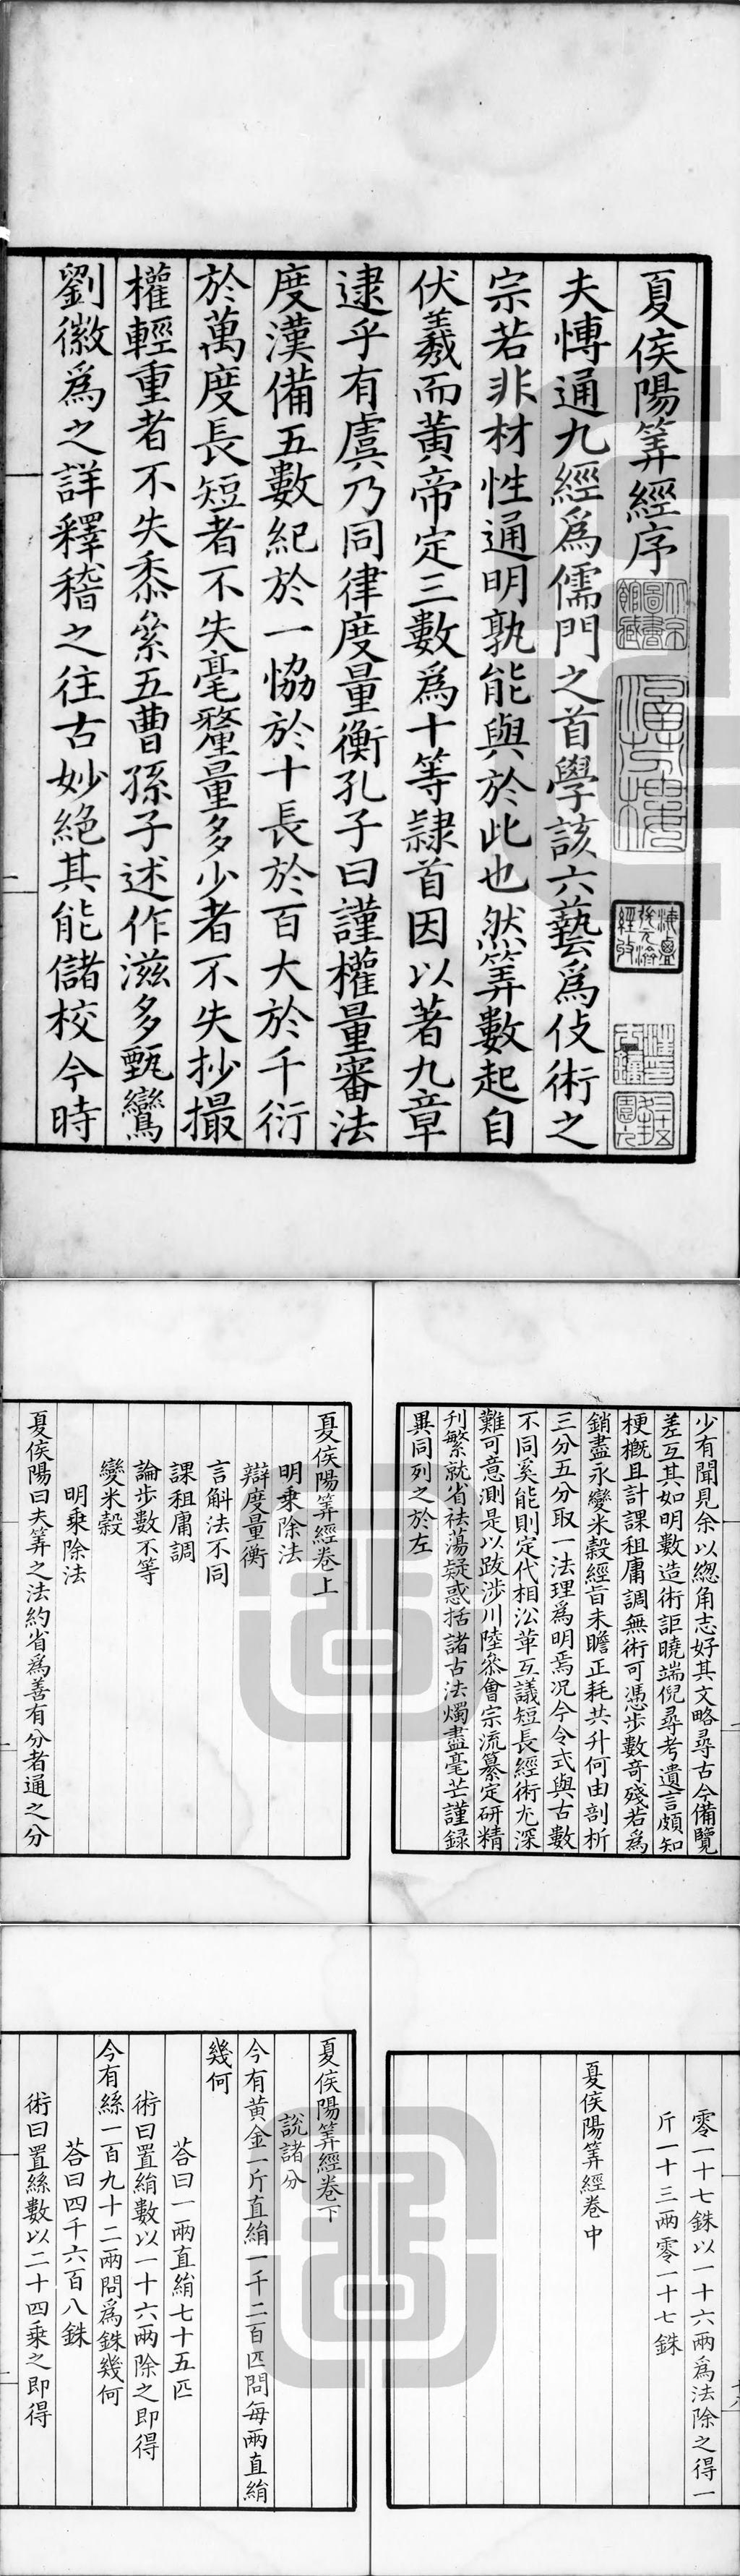 夏侯陽筭經序
夫博通九經爲儒門之首學該六藝爲伎術之
宗若非材性通明孰能與於此也然筭數起自
伏羲而黄帝定三數爲十等隸首因以著九章
逮乎有虞乃同律度量衡孔子曰謹權量審法
度漢備五數紀於一恊於十長於百大於千衍
於萬度長短者不失毫氂量多少者不失抄撮
權輕重者不失黍絫五曹孫子述作滋多甄鸞
劉徽爲之詳釋稽之往古妙絶其能儲校今時
少有聞見余以緫角志好其文略尋古今備覽
差互其如明數造術詎曉端倪尋考遺言頗知
梗槪且計課租庸調無術可憑步數竒殘若爲
銷盡永變米穀經旨未瞻正耗共升何由剖析
三分五分取一法理爲明焉况今令式與古數
不同奚能則定代相沿革互議短長經術尤深
難可意測是以跋涉川陸叅會宗流纂定研精
刋繁就省祛蕩疑惑括諸古法燭盡毫芒謹録
異同列之於左
夏侯陽筭經卷上
明乗除法
辯度量衡
言斛法不同
課租庸調
論步數不等
變米穀
明乗除法
夏侯陽曰夫筭之法約省爲善有分者通之分
零一十七銖以一十六兩爲法除之得一
斤一十三兩零一十七銖
夏侯陽筭經卷中
夏侯陽筭經卷下
説諸分
今有黄金一斤直絹一千二百匹問每兩直絹
幾何
荅曰一兩直絹七十五匹
術曰置絹數以一十六兩除之即得
今有絲一百九十二兩問爲銖幾何
荅曰四千六百八銖
術曰置絲數以二十四乗之即得